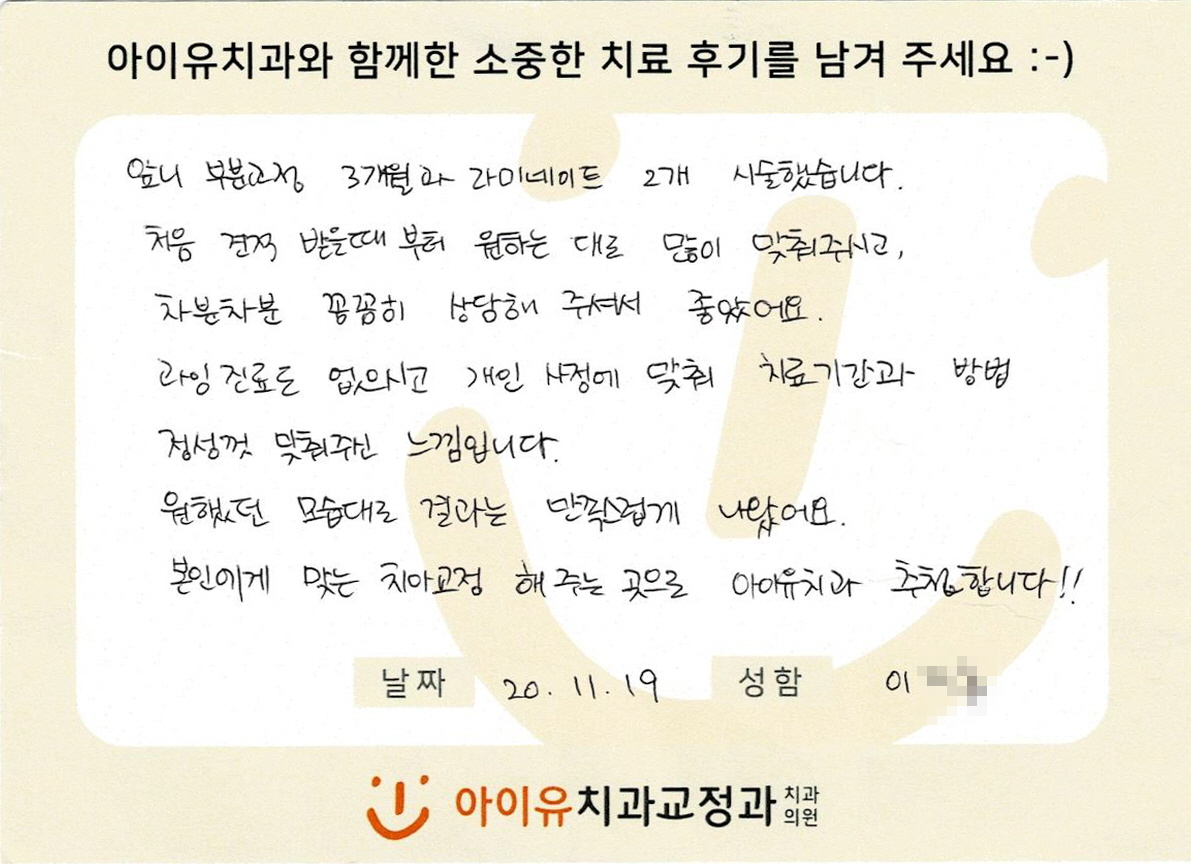 아이유치과와 함께한 소중한 치료 후기를 남겨 주세요 :-)
앞니 부분교정 3개월과 라미네이트 2개 시술했습니다.
처음 견적 받을때 부터 원하는 대로 많이 맞춰주시고,
차분차분 꼼꼼히 상담해 주셔서 좋았어요.
과잉진료도 없으시고 개인 사정에 맞춰 치료기간과 방법
정성껏 맞춰주신 느낌입니다.
원했던 모습대로 결과는 만족스럽게 나왔어요.
본인에게 맞는 치아교정 해 주는 곳으로 아이유치과 추천합니다!!
날짜 20. 11. 19 성함 이
아이유치과교정과 치과의원